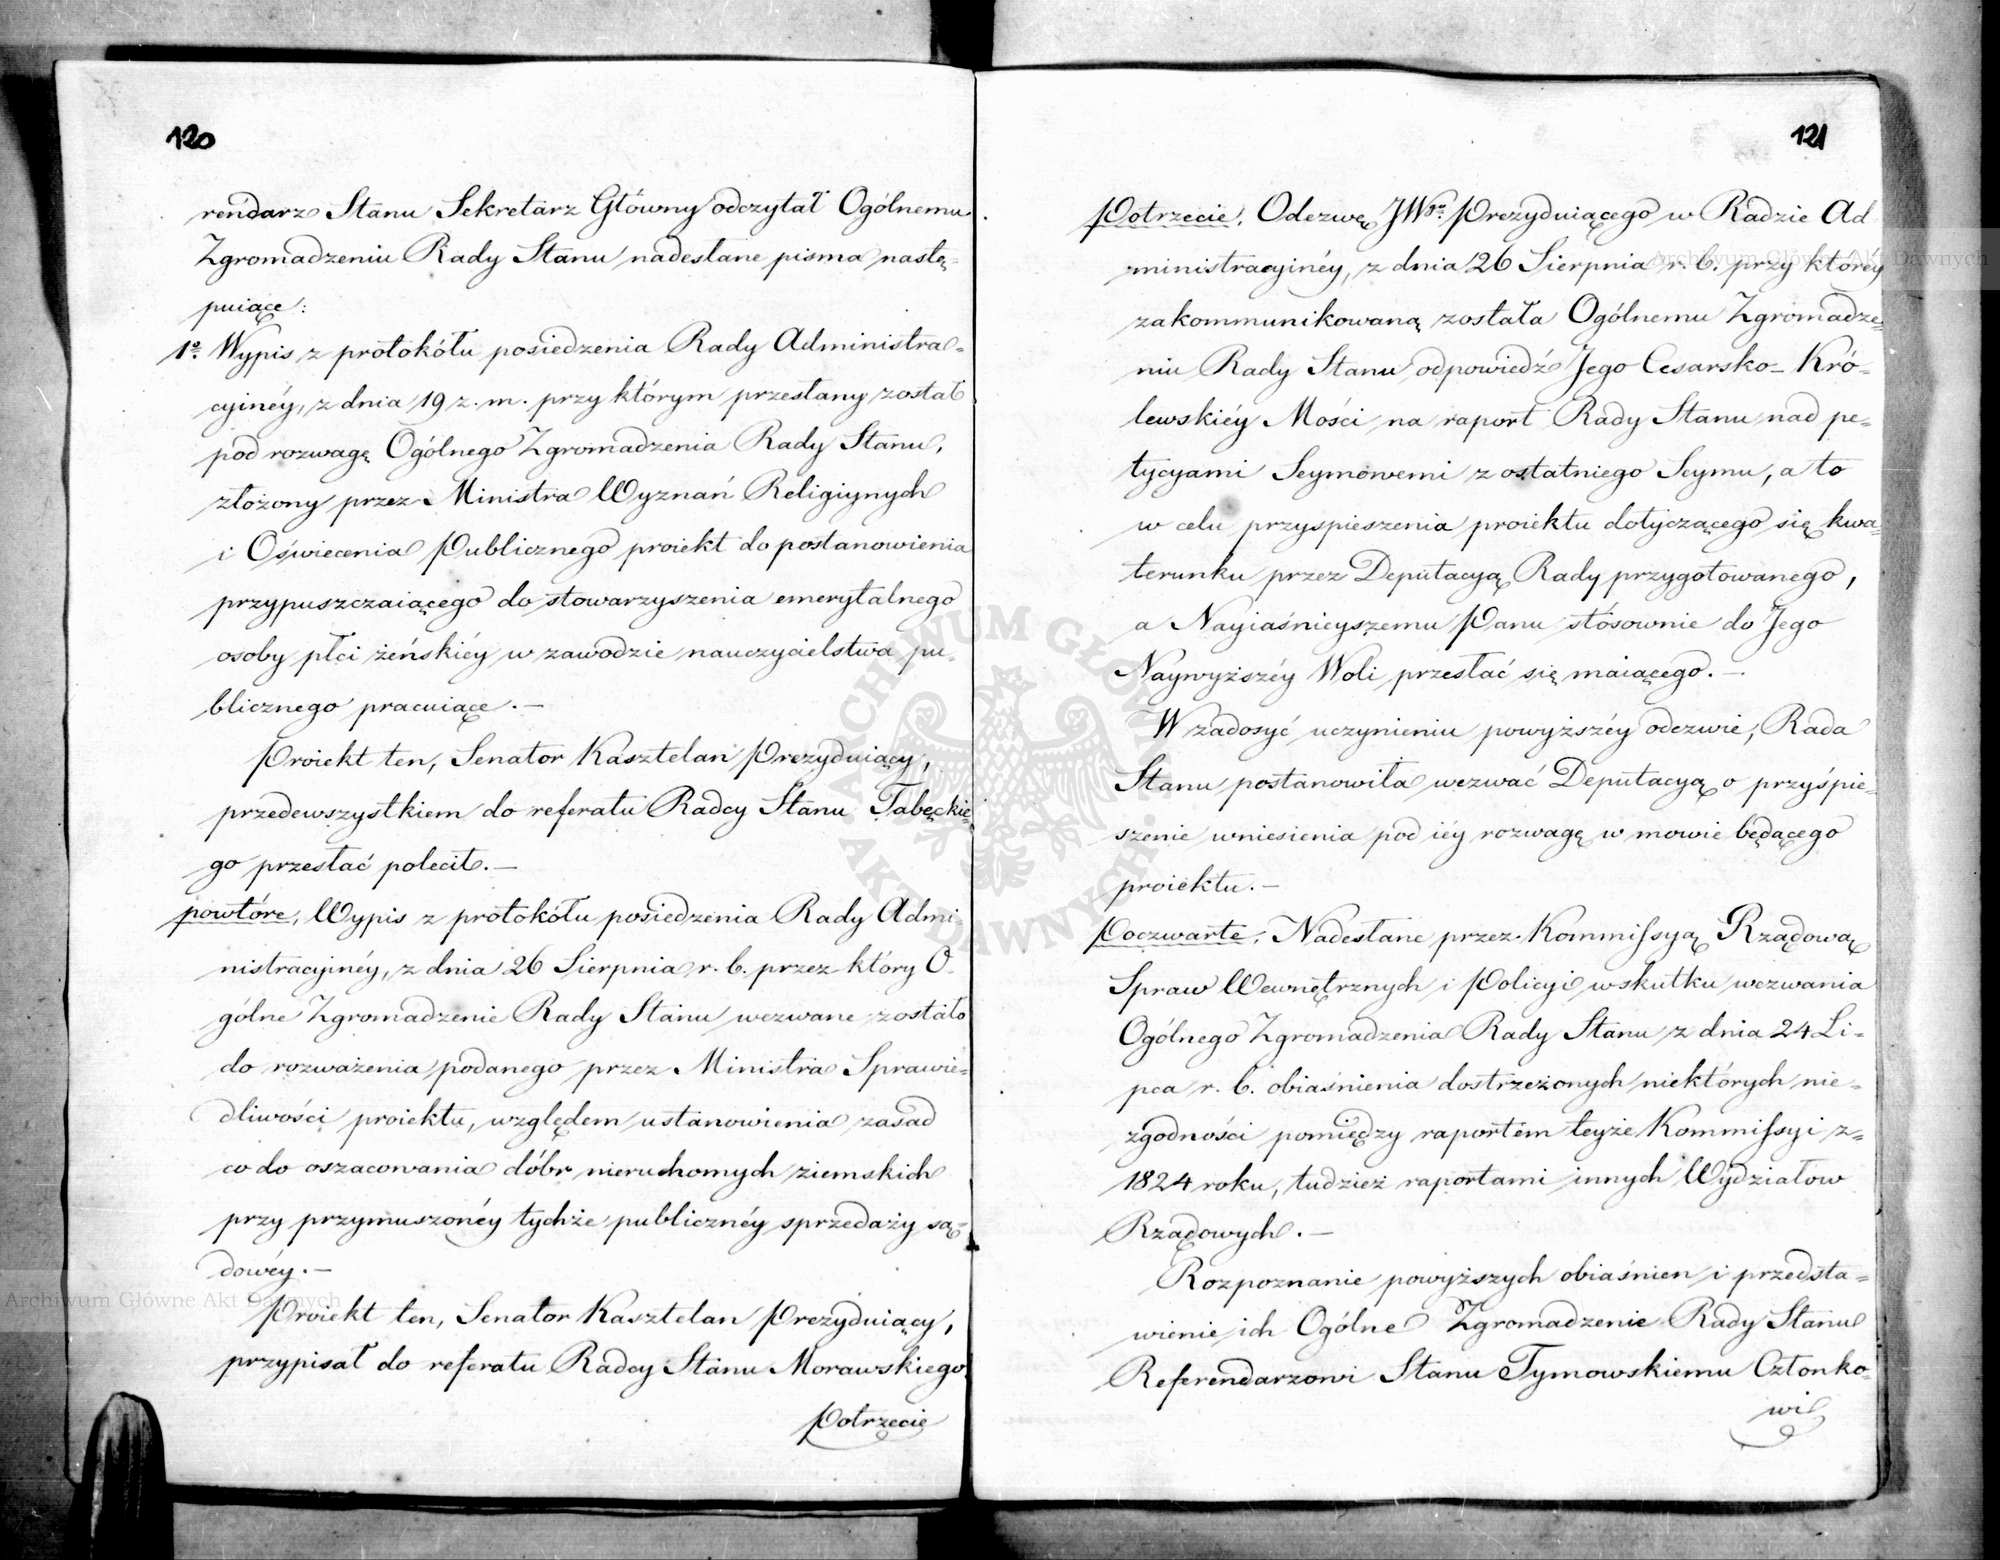 120
rendarz Stanu Sekretarz Główny odczytał Ogólnemu
Zgromadzeniu Rady Stanu nadesłane pisma nastę-
puiące:
1º Wypis z protokółu posiedzenia Rady Administra-
cyinéy, z dnia 19 z. m. przy którym przesłany został
pod rozwagę Ogólnego Zgromadzenia Rady Stanu,
złożony przez Ministra Wyznań Religiynych
i Oświecenia Publicznego proiekt do postanowienia
przypuszczaiącego do stowarzyszenia emerytalnego
osoby płci żeńskiéy w zawodzie nauczycielstwa pu-
blicznego pracuiące.—
Proiekt ten, Senator Kasztelan Prezyduiący,
przedewszystkiem do referatu Radcy Stanu Tabęckie-
go przesłać polecił.—
powtóre, Wypis z protokółu posiedzenia Rady Admi-
nistracyinéy, z dnia 26 Sierpnia r. b. przez który O-
gólne Zgromadzenie Rady Stanu wezwane zostało
do rozważenia podanego przez Ministra Sprawie-
dliwości proiektu, względem ustanowienia zasad
co do oszacowania dóbr nieruchomych ziemskich
przy przymuszonéy tychże publicznéy sprzedaży są-
dowéy.—
Proiekt ten, Senator Kasztelan Prezyduiący,
przypisał do referatu Radcy Stanu Morawskiego.
Potrzecie
121
Potrzecie, Odezwę JWgo Prezyduiącego w Radzie Ad
ministracyinéy, z dnia 26 Sierpnia r. b. przy któréy
zakommunikowaną została Ogólnemu Zgromadze-
niu Rady Stanu odpowiedź Jego Cesarsko-Kró-
lewskiéy Mości na raport Rady Stanu nad pe-
tycyami Seymowemi z ostatniego Seymu, a to
w celu przyspieszenia proiektu dotyczącego się kwa-
terunku przez Deputacyą Rady przygotowanego,
a Nayiaśnieyszemu Panu stósownie do Jego
Naywyższéy Woli przesłać się maiącego.—
W zadosyć uczynieniu powyższéy odezwie, Rada
Stanu postanowiła wezwać Deputacyą o przyśpie-
szenie wniesienia pod iéy rozwagę w mowie będącego
proiektu.—
Poczwarte, Nadesłane przez Kommissyą Rządową
Spraw Wewnętrznych i Policyi wskutku wezwania
Ogólnego Zgromadzenia Rady Stanu z dnia 24 Li-
pca r. b. obiaśnienia dostrzeżonych niektórych nie-
zgodności pomiędzy raportem teyże Kommissyi z-
1824 roku, tudzież raportami innych Wydziałów
Rządowych.—
Rozpoznanie powyższych obiaśnien i przedsta-
wienie ich Ogólne Zgromadzenie Rady Stanu
Referendarzowi Stanu Tymowskiemu Członko-
wi
ARCHIWUM GŁÓWNE AKT DAWNYCH
Archiwum Główne Akt Dawnych
Archiwum Główne Akt Dawnych